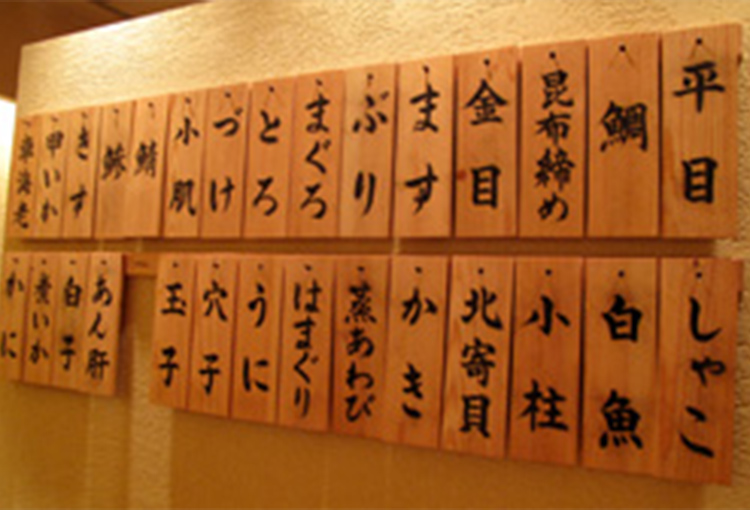 平目
鯛
昆布締め
金目
ます
ぶり
まぐろ
とろ
づけ
小肌
鯖
鰺
きす
甲いか
車海老
しゃこ
白魚
小柱
北寄貝
かき
蒸あわび
はまぐり
うに
穴子
玉子
あん肝
白子
煮いか
かに